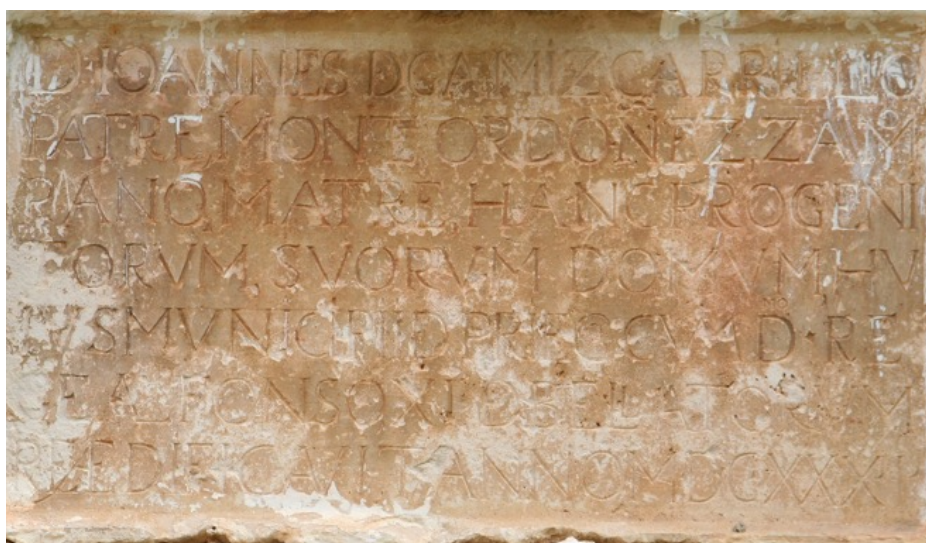 D·IOANNES D GAMIZ GABRIELE
PATRE, MONTE ORDOÑEZ, ZAM
RANO, MATRE, HANC PROGENI
TORVM, SVORVM DOMVM, HV
IVS MVNICIPII D PR CVM D·RE
GE ALFONSO XI
REÆDIFICAVIT ANNO MDCXXXI